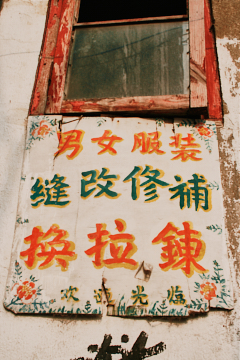 男女服装
缝改修補
换拉鍊
欢迎光临